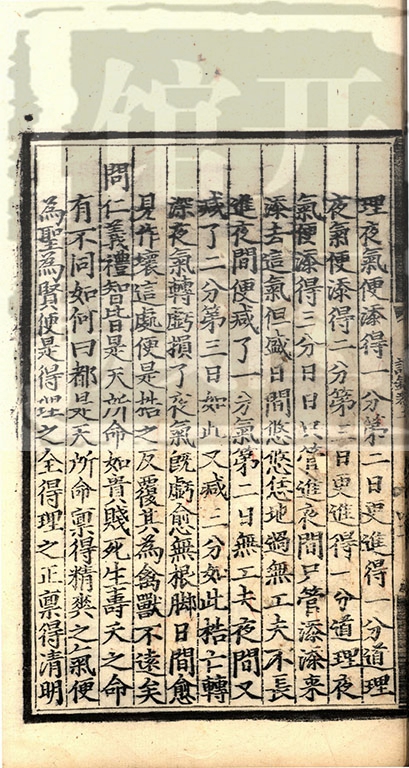 理夜氣便添得一分第二日更進得一分道理
夜氣便添得二分第三日更進得一分道理夜
氣便添得三分日日只管進夜間只管添添来
添去這氣但盛日間悠悠恁地過無工夫不長
進夜間便减了一分氣第二日無工夫夜間又
减了二分第三日如此又减三分如此梏亡轉
深夜氣轉虧損了夜氣旣虧愈無根脚日間愈
見作壞這處便是梏之反覆其為禽獸不遠矣
問仁義禮智皆是天所命如貴賤死生壽夭之命
有不同如何曰都是天所命禀得精英之氣便
為聖為賢便是得理之全得理之正禀得清明